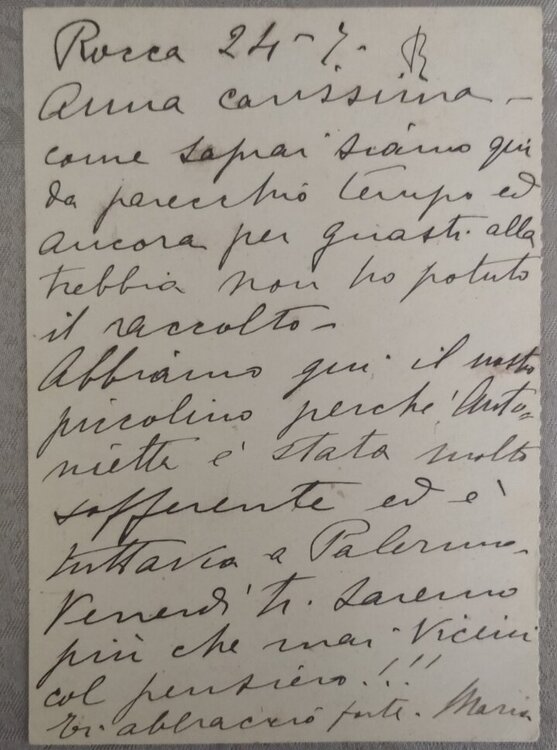 Rocca 24-7- R
Anna carissima -
come saprai siamo qui
da parecchio tempo ed
ancora per guasti alla
trebbia non ho potuto
il raccolto -
Abbiamo qui il nostro
piccolino perché Anto=
nietta è stata molto
sofferente ed è
tuttavia a Palermo -
Venerdì ti saremo
più che mai vicini
col pensiero!!!
Ti abbraccio forte. Maria